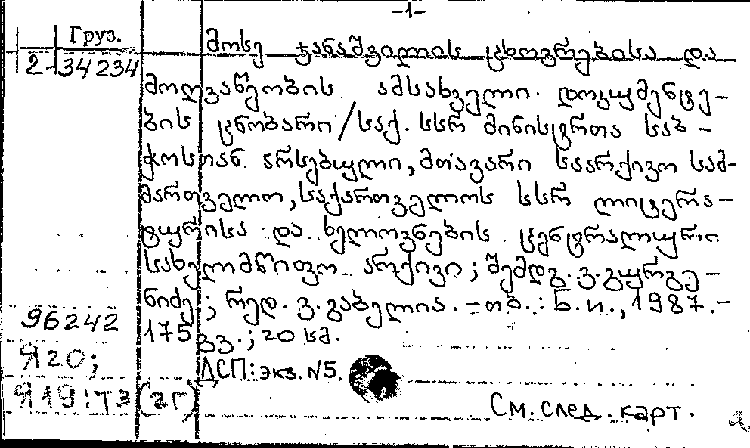 -1-
Груз.
2-34234
მოსე ჯანაშვილის ცხოვრებისა და
მოღვაწეობის ამსახველი დოკუმენტე-
ბის ცნობარი/საქ. სსრ მინისტრთა საბ-
ჭოსთან არსებული, მთავარი საარქივო სამ-
მართველო, საქართველოს სსრ ლიტერა-
ტურისა და ხელოვნების ცენტრალური
სახელმწიფო არქივი; შემდგ. ვ. გურგე-
ნიძე; რედ. ვ. გაბელია. - თბ.: ბ.ი., 1987. -
96242
175 გვ.; 20 სმ.
Я20;
ДСП: экз. №5.
Я19:Т3(2Г)
См. след. карт.